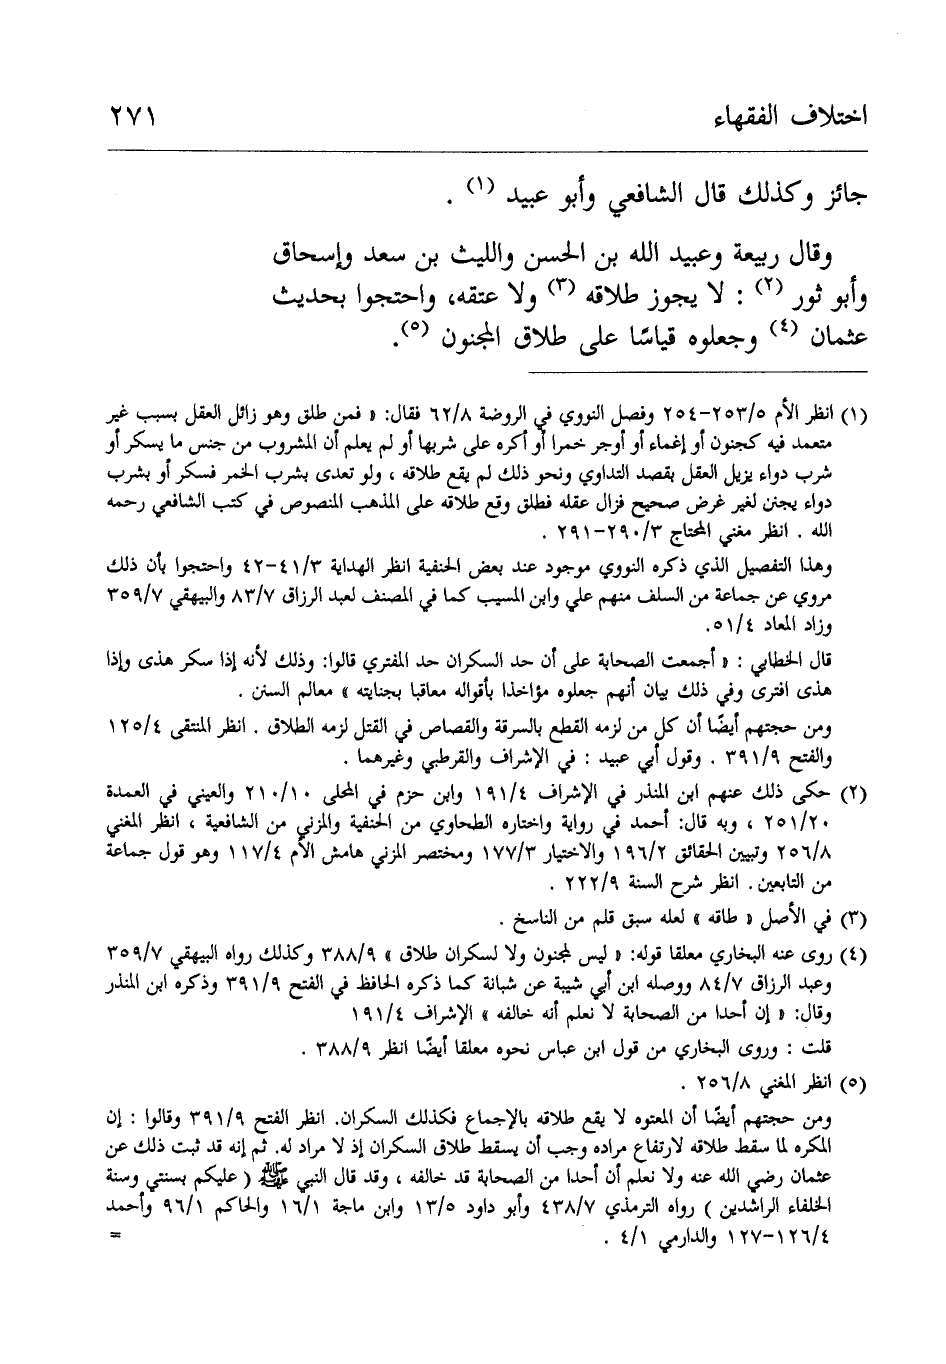 اختلاف الفقهاء ٢٧١
جائز وكذلك قال الشافعي وأبو عبيد (١) .
وقال ربيعة وعبيد الله بن الحسن والليث بن سعد وإسحاق
وأبو ثور (٢) : لا يجوز طلاقه (٣) ولا عتقه، واحتجوا بحديث
عثمان (٤) وجعلوه قياسًا على طلاق المجنون (٥).
(١) انظر الأم ٢٥٣/٥-٢٥٤ وفصل النووي في الروضة ٦٢/٨ فقال: « فمن طلق وهو زائل العقل بسبب غير
متعمد فيه كجنون أو إغماء أو أوجر خمرا أو أكره على شربها أو لم يعلم أن المشروب من جنس ما يسكر أو
شرب دواء يزيل العقل بقصد التداوي ونحو ذلك لم يقع طلاقه ، ولو تعدى بشرب الخمر فسكر أو بشرب
دواء يجنن لغير غرض صحيح فزال عقله فطلق وقع طلاقه على المذهب المنصوص في كتب الشافعي رحمه
الله . انظر مغني المحتاج ٢٩٠/٣-٢٩١ .
وهذا التفصيل الذي ذكره النووي موجود عند بعض الحنفية انظر الهداية ٤١/٣-٤٢ واحتجوا بأن ذلك
مروي عن جماعة من السلف منهم علي وابن المسيب كما في المصنف لعبد الرزاق ٨٣/٧ والبيهقي ٣٥٩/٧
وزاد المعاد ٥١/٤.
قال الخطابي : « أجمعت الصحابة على أن حد السكران حد المفتري قالوا: وذلك لأنه إذا سكر هذى وإذا
هذى افترى وفي ذلك بيان أنهم جعلوه مؤاخذا بأقواله معاقبا بجنايته » معالم السنن .
ومن حجتهم أيضًا أن كل من لزمه القطع بالسرقة والقصاص في القتل لزمه الطلاق . انظر المنتقى ١٢٥/٤
والفتح ٣٩١/٩ . وقول أبي عبيد : في الإشراف والقرطبي وغيرهما .
(٢) حكى ذلك عنهم ابن المنذر في الإشراف ١٩١/٤ وابن حزم في المحلى ٢١٠/١٠ والعيني في العمدة
٢٥١/٢٠ ، وبه قال: أحمد في رواية واختاره الطحاوي من الحنفية والمزني من الشافعية ، انظر المغني
٢٥٦/٨ وتبيين الحقائق ١٩٦/٢ والاختيار ١٧٧/٣ ومختصر المزني هامش الأم ١١٧/٤ وهو قول جماعة
من التابعين. انظر شرح السنة ٢٢٢/٩ .
(٣) في الأصل « طاقه » لعله سبق قلم من الناسخ .
(٤) روى عنه البخاري معلقا قوله: « ليس لمجنون ولا لسكران طلاق » ٣٨٨/٩ وكذلك رواه البيهقي ٣٥٩/٧
وعبد الرزاق ٨٤/٧ ووصله ابن أبي شيبة عن شبانة كما ذكره الحافظ في الفتح ٣٩١/٩ وذكره ابن المنذر
وقال: « إن أحدا من الصحابة لا نعلم أنه خالفه » الإشراف ١٩١/٤
قلت : وروى البخاري من قول ابن عباس نحوه معلقا أيضًا انظر ٣٨٨/٩ .
(٥) انظر المغني ٢٥٦/٨ .
ومن حجتهم أيضًا أن المعتوه لا يقع طلاقه بالإجماع فكذلك السكران. انظر الفتح ٣٩١/٩ وقالوا : إن
المكره لما سقط طلاقه لارتفاع مراده وجب أن يسقط طلاق السكران إذ لا مراد له. ثم إنه قد ثبت ذلك عن
عثمان رضي الله عنه ولا نعلم أن أحدا من الصحابة قد خالفه ، وقد قال النبي ﷺ ( عليكم بسنتي وسنة
الخلفاء الراشدين ) رواه الترمذي ٤٣٨/٧ وأبو داود ١٣/٥ وابن ماجة ١٦/١ والحاكم ٩٦/١ وأحمد
١٢٦/٤-١٢٧ والدارمي ٤/١ . =